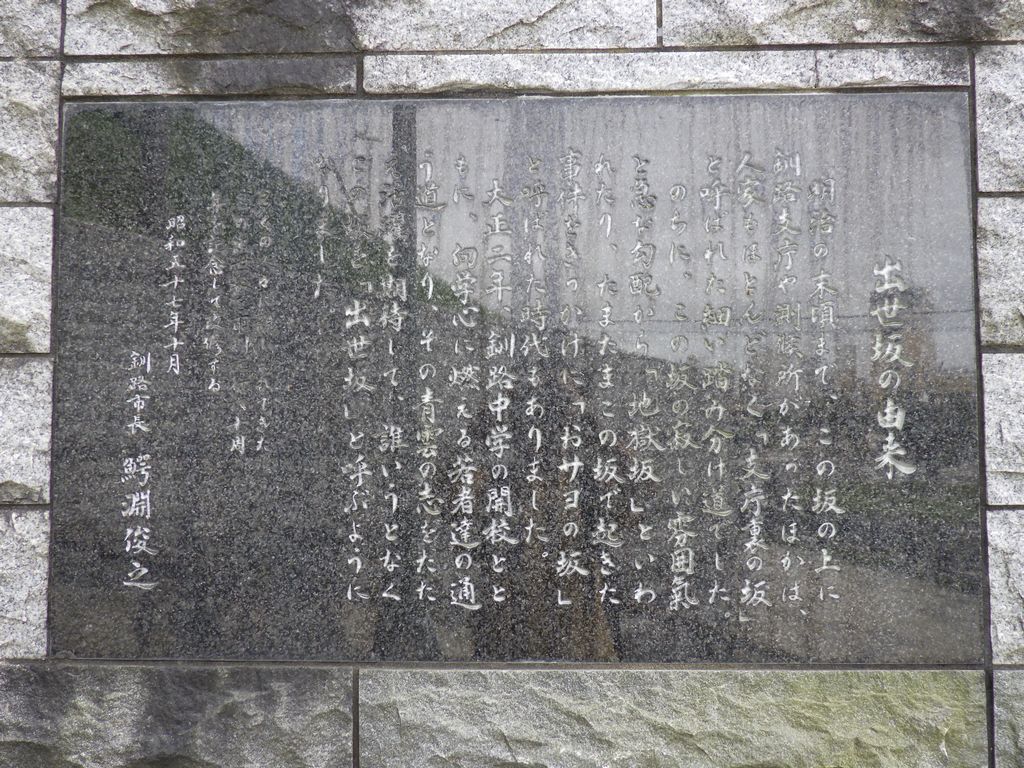 出世坂の由来
明治の末頃まで、この坂の上に
釧路支庁や測候所があったほかは、
人家もほとんどなく「支庁裏の坂」
と呼ばれた細い踏み分け道でした。
のちに、この坂の寂しい雰囲氣
と急な勾配から「地獄坂」といわ
れたり、たまたまこの坂で起きた
事件をきっかけに「おサヨの坂」
と呼ばれた時代もありました。
大正二年、釧路中学の開校とと
もに、向学心に燃える若者達の通
う道となり、その青雲の志をたた
え活躍を期待して、誰いうとなく
この坂を「出世坂」と呼ぶように
なりました
昭和五十七年十月
釧路市長 鰐淵俊之